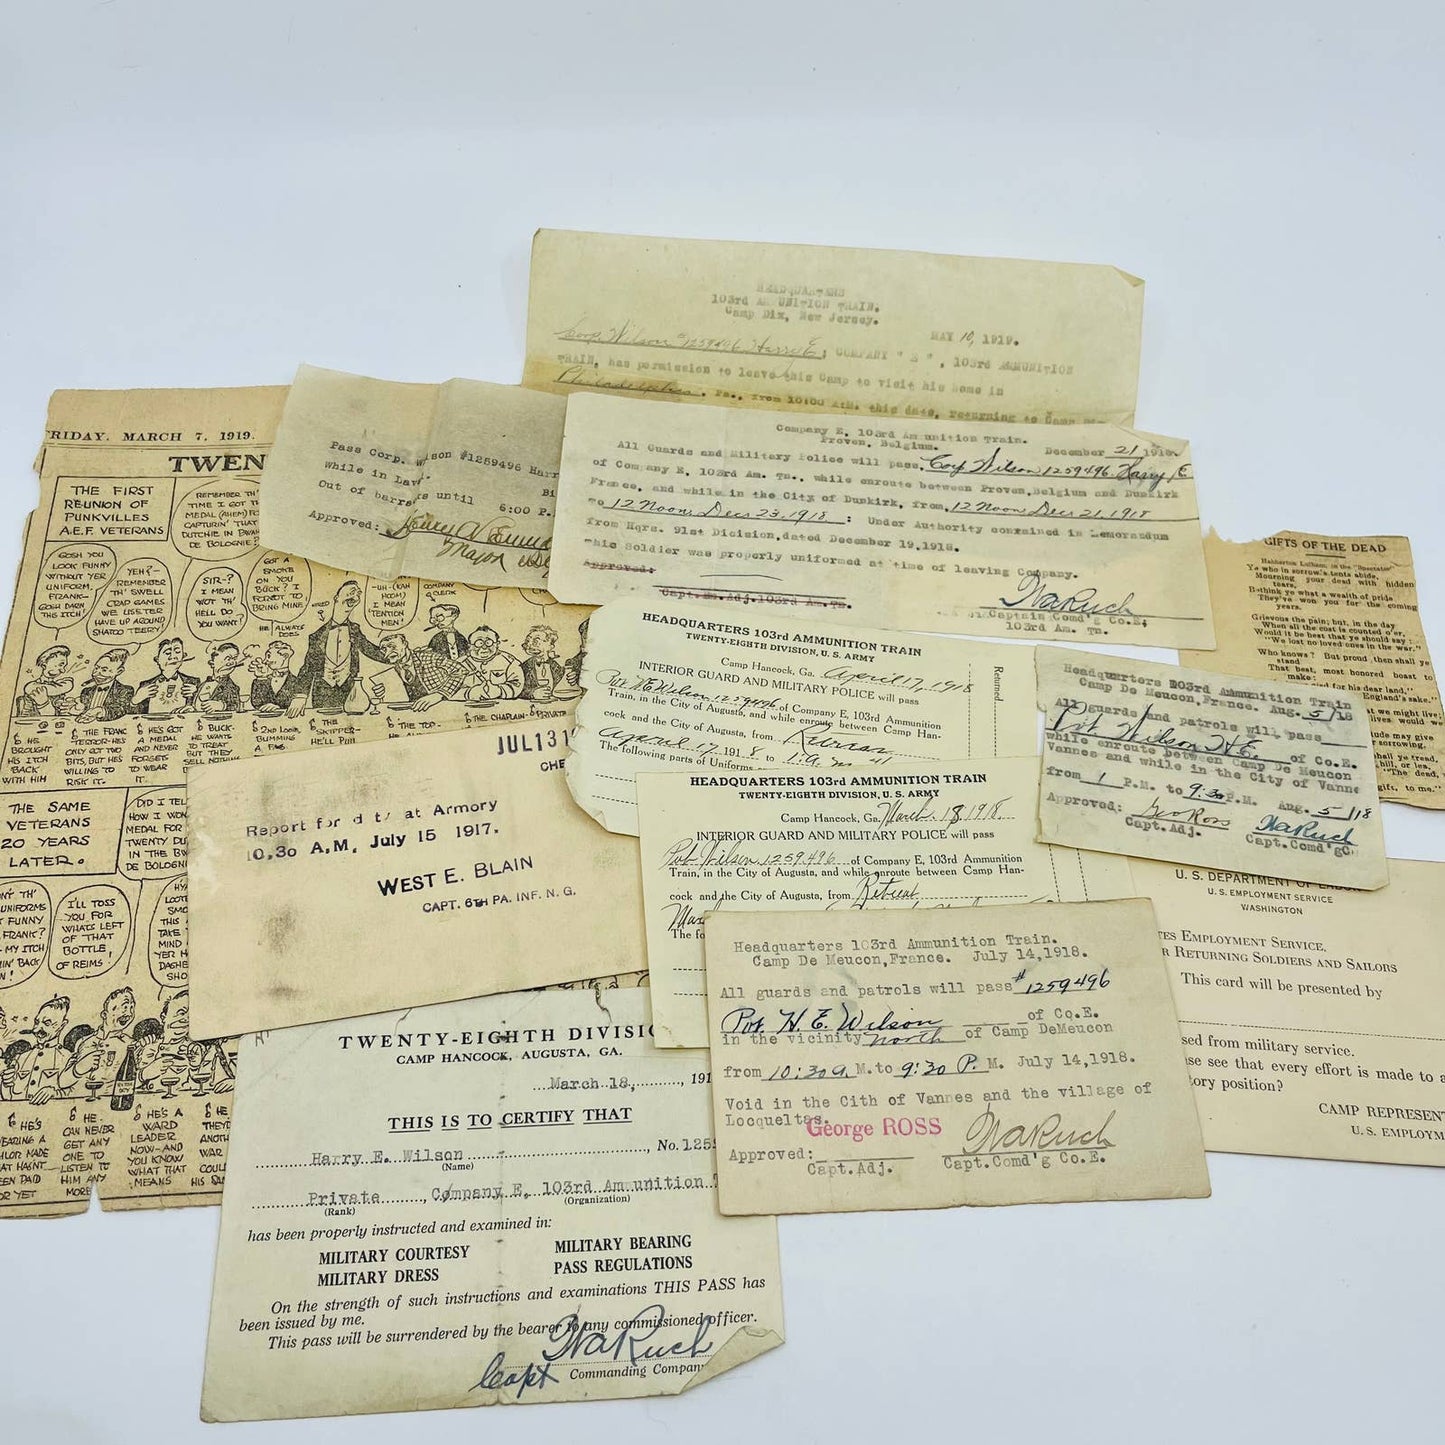 HEADQUARTERS
103rd AMMUNITION TRAIN.
Camp Dix, New Jersey.
MAY 10, 1919.
Corp. Wilson #1259496 Harry E; COMPANY " E ", 103rd AMMUNITION
TRAIN, has permission to leave this Camp to visit his home in
Philadelphia, Pa., from 10:00 A.M. this date, returning to Camp
Pass Corp. Wilson #1259496 Harr
while in Lav
Out of barracks until 6:00 P.
Approved:
Major
Company E, 103rd Am unition Train.
Proven, Belgium.
December 21, 1918.
All Guards and Military Police will pass, Corp Wilson 1259496 Harry E
of Company E, 103rd Am. Tn., while enroute between Proven, Belgium and Dunkirk
France, and while in the City of Dunkirk, from, 12 Noon, Dec 21, 1918
To 12 Noon, Dec 23, 1918 : Under Authority contained in Memorandum
from Hqrs. 91st Division, dated December 19, 1918.
This Soldier was properly uniformed at time of leaving Company.
Approved:
Capt. Adj. 103rd Am. Tn.
WaRuch
Captain Comd'g Co.E,
103rd Am. Tn.
FRIDAY, MARCH 7, 1919.
TWEN
THE FIRST
REUNION OF
PUNKVILLES
A.E.F. VETERANS
REMEMBER TH'
TIME I GOT TH
MEDAL (AHEM) FO
CAPTURIN' THAT
DUTCHIE IN BWA
DE BOLOGNIE?
GOSH YOU
LOOK FUNNY
WITHOUT YER
UNIFORM,
FRANK-
GOSH DARN
THIS ITCH!
YEH?-
REMEMBER
TH' SWELL
CRAP GAMES
WE USETER
HAVE UP AROUND
SHATOO TEERY!
SIR-?
I MEAN
WOT TH'
HELL DO
YOU WANT?
GOT A
SMOKE
ON YOU
BUCK? I
FORGOT TO
BRING MINE
HE ALWAYS
DOES
UH-(KAH
HOOM)
I MEAN
'TENTION
MEN!
COMPANY
CLERK
HE
BROUGHT
HIS ITCH
BACK
WITH HIM
THE FRANC
TERROR-HES
ONLY GOT TWO
BITS, BUT HES
WILLING TO
RISK IT.
HE'S GOT
A MEDAL
AND NEVER
FORGETS
TO WEAR
IT.
BUCK-
HE WANTS
TO TREAT
BUT THEY
SELL NOTHING
2ND LOOK
BUMMING
A FAG
THE
SKIPPER-
HE'LL PUN
THE
TOP-
THE CHAPLAIN-
PRIVATE
HEADQUARTERS 103RD AMMUNITION TRAIN
TWENTY-EIGHTH DIVISION, U. S. ARMY
Camp Hancock, Ga. April 17, 1918
INTERIOR GUARD AND MILITARY POLICE will pass
Pvt. H E Wilson 1259496 of Company E, 103rd Ammunition
Train, in the City of Augusta, and while enroute between Camp Han-
cock and the City of Augusta, from
April 17 1918 to
The following parts of Uniform
Returned
GIFTS OF THE DEAD
Habberton Lulham, in the "Spectator"
Ye who in sorrow's tents abide,
Mourning your dead with hidden
tears,
Bethink ye what a wealth of pride
They've won you for the coming
years.
Grievous the pain; but, in the day
When all the cost is counted o'er,
Would it be best that ye should say:
"We lost no loved ones in the war."
Who knows? But proud then shall ye
stand
That best, most honored boast to
make:
ed for his dear land,"
England's sake."
we might live;
lives would we
ude may give
sorrowing,
ll ye tread,
hill, or lea,
"The dead,
gifts, to me."
Headquarters 103rd Ammunition Train
Camp De Meucon, France. Aug. 5/18
All guards and patrols will pass
Pvt. Wilson H E. of Co.E.
while enroute between Camp De Meucon
Vannes and while in the City of Vanne
from 1 P.M. to 9:30 P.M. Aug. 5/18
Approved: Geo Ross
Capt.Adj.
WaRuch
Capt.Comd'gC
JUL 13 1
Report for duty at Armory
10.30 A.M. July 15 1917.
WEST E. BLAIN
CAPT. 6TH PA. INF. N. G.
THE SAME
VETERANS
20 YEARS
LATER.
DID I TEL
HOW I WON
MEDAL FOR
TWENTY DU
IN THE BW
DE BOLOGN
N'T TH'
UNIFORMS
FUNNY.
FRANK?
MY ITCH
IN' BACK
N!
I'LL TOSS
YOU FOR
WHATS LEFT
OF THAT
BOTTLE
OF REIMS!
HE'S
EARING A
LOR MADE
AT HASNT
EEN PAID
OR YET
HE
CAN NEVER
GET ANY
ONE TO
LISTEN TO
HIM ANY
MORE
HE'S A
WARD
LEADER
NOW-AND
YOU KNOW
WHAT THAT
MEANS
HEADQUARTERS 103RD AMMUNITION TRAIN
TWENTY-EIGHTH DIVISION, U. S. ARMY
Camp Hancock, Ga. March 18, 1918.
INTERIOR GUARD AND MILITARY POLICE will pass
Pvt. Wilson, 1259496 of Company E, 103rd Ammunition
Train, in the City of Augusta, and while enroute between Camp Han-
cock and the City of Augusta, from Retreat
The fo
U. S. DEPARTMENT OF LABOR
U. S. EMPLOYMENT SERVICE
WASHINGTON
TES EMPLOYMENT SERVICE,
R RETURNING SOLDIERS AND SAILORS
This card will be presented by
sed from military service.
ase see that every effort is made to a
tory position?
CAMP REPRESENT
U. S. EMPLOYM
Headquarters 103rd Ammunition Train.
Camp De Meucon,France. July 14,1918.
All guards and patrols will pass #1259496
Pvt. H. E. Wilson of Co.E.
in the vicinity north of Camp DeMeucon
from 10:30 a. M. to 9:30 P. M. July 14,1918.
Void in the Cith of Vannes and the village of
Locqueltas.
George ROSS
Approved:
Capt.Adj.
WaRuch
Capt.Comd'g Co.E.
TWENTY-EIGHTH DIVISIO
CAMP HANCOCK, AUGUSTA, GA.
March 18, 191
THIS IS TO CERTIFY THAT
Harry E. Wilson, No. 125
(Name)
Private, Company E, 103rd Am unition T
(Rank) (Organization)
has been properly instructed and examined in:
MILITARY COURTESY MILITARY BEARING
MILITARY DRESS PASS REGULATIONS
On the strength of such instructions and examinations THIS PASS has
been issued by me.
This pass will be surrendered by the bearer to any commissioned officer.
WaRuch
Capt Commanding Company